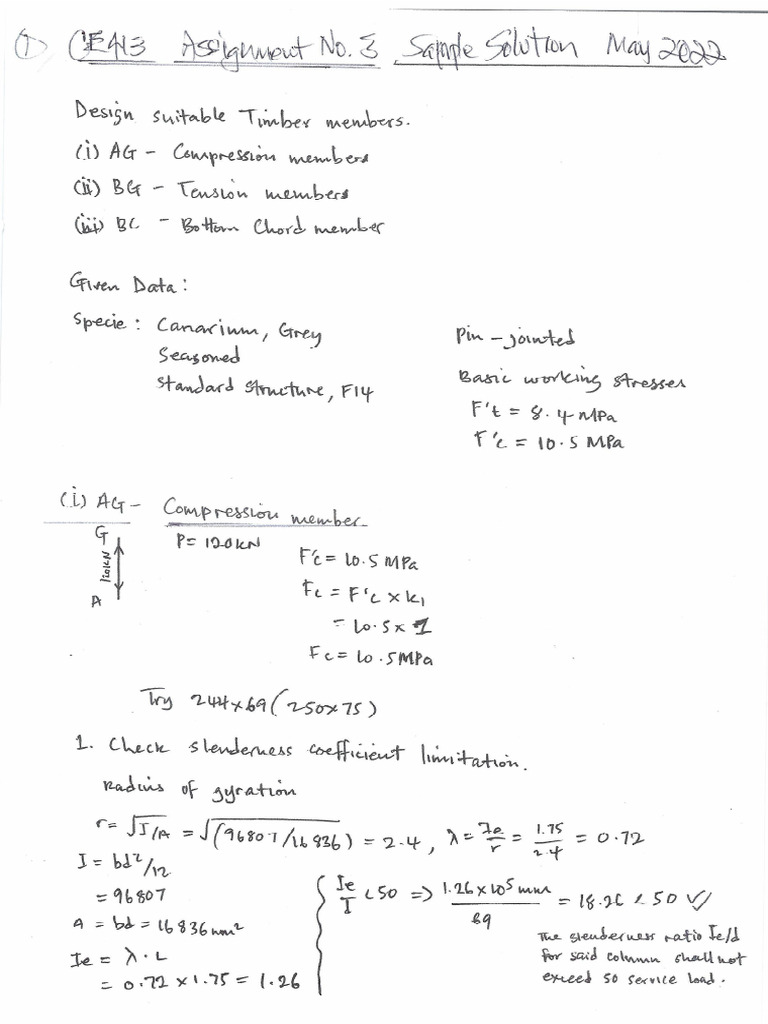 ① CE413 Assignment No. 3 Sample Solution May 2022
Design suitable Timber members.
(i) AG - Compression members
(ii) BG - Tension members
(iii) BC - Bottom Chord member
Given Data:
Specie: Canarium, Grey
Seasoned
Standard structure, F14
Pin-jointed
Basic working stresses
F't = 8.4 MPa
F'c = 10.5 MPa
(i) AG - Compression member
G
120kN
A
P = 120kN
F'c = 10.5 MPa
Fc = F'c x k1
= 10.5 x 1
Fc = 10.5 MPa
Try 244x69 (250x75)
1. Check slenderness coefficient limitation.
Radius of gyration
r = √I/A = √(96807/16836) = 2.4, λ = Ie/r = 1.75/2.4 = 0.72
I = bd²/12
= 96807
A = bd = 16836 mm²
Ie = λ.L
= 0.72 x 1.75 = 1.26
Ie/I < 50 => 1.26 x 10⁵ mm/69 = 18.26 < 50 ✓
The slenderness ratio Ie/d
for said column shall not
exceed 50 service load.